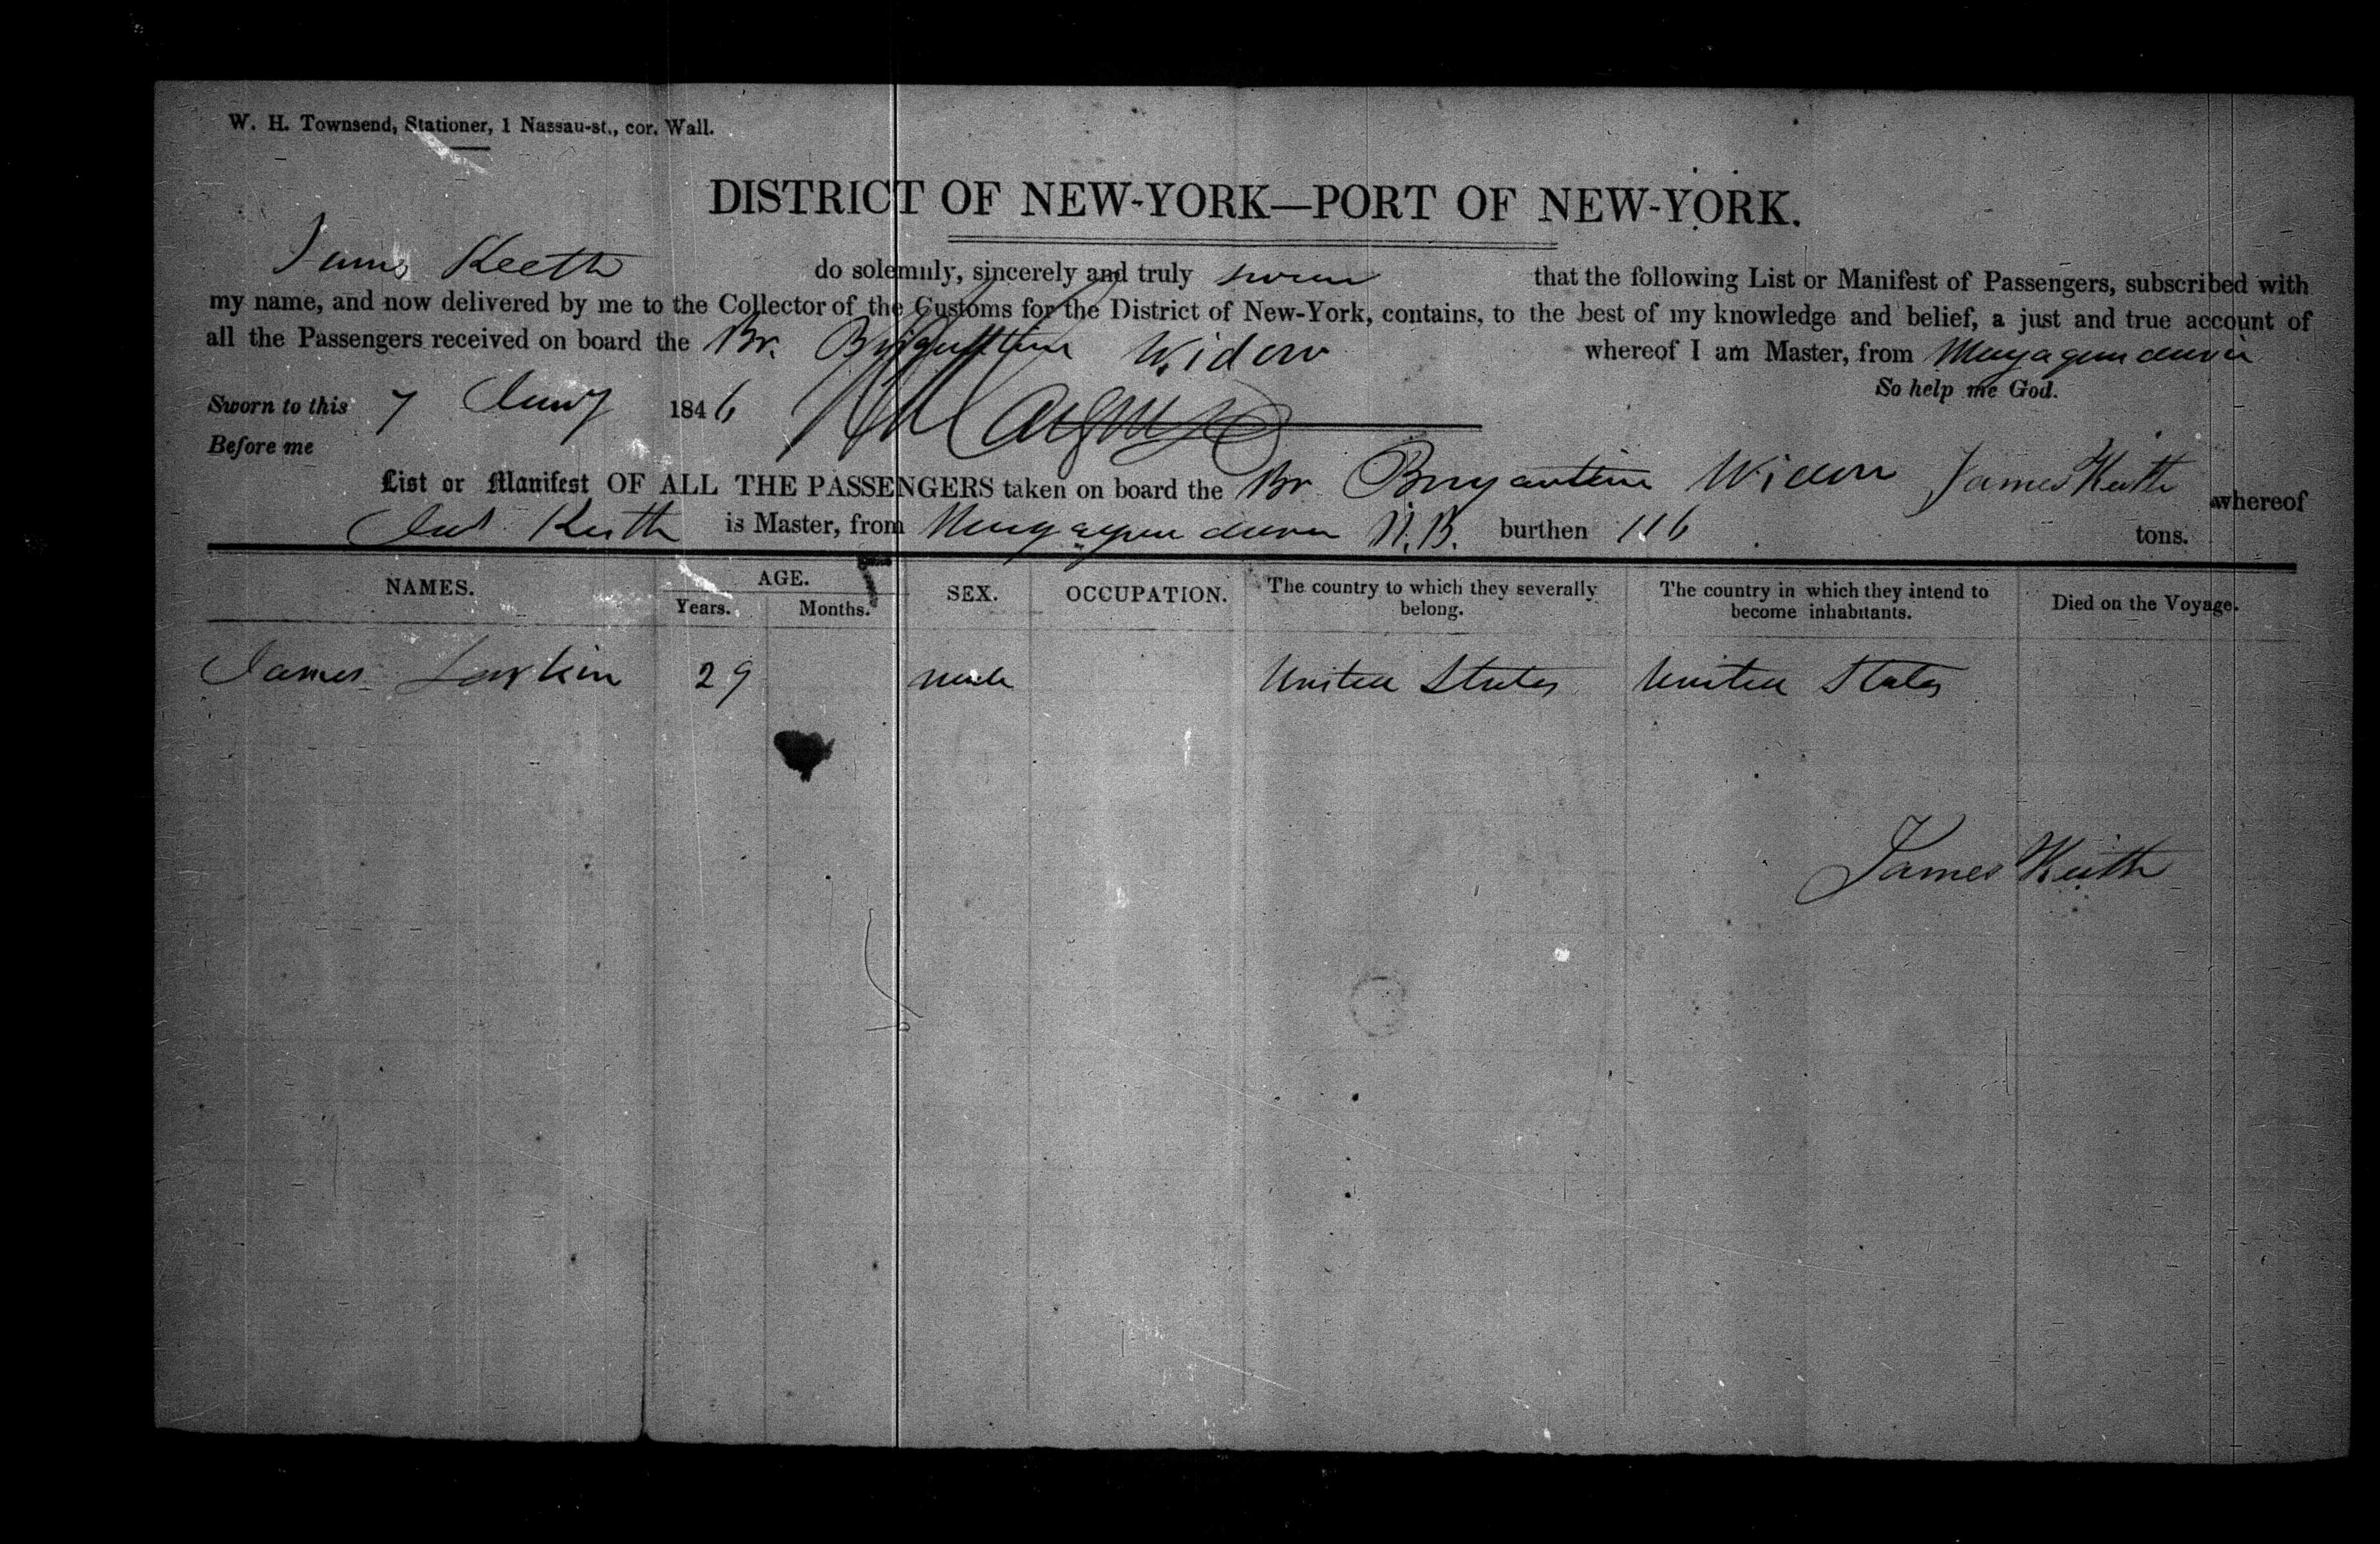 W. H. Townsend, Stationer, 1 Nassau-st., cor. Wall.
DISTRICT OF NEW-YORK—PORT OF NEW-YORK.
James Keith do solemnly, sincerely and truly swear that the following List or Manifest of Passengers, subscribed with
my name, and now delivered by me to the Collector of the Customs for the District of New-York, contains, to the best of my knowledge and belief, a just and true account of
all the Passengers received on board the Br. Brigantine Widow whereof I am Master, from Magaguadavic
So help me God.
Sworn to this 7 1846
Before me
List or Manifest OF ALL THE PASSENGERS taken on board the Br Brigantine Widow James Keith whereof
Jas Keith is Master, from Magaguadavic N.B. burthen 116 tons.
NAMES. AGE. SEX. OCCUPATION. The country to which they severally belong. The country in which they intend to become inhabitants. Died on the Voyage.
Years. Months.
James Larkin 29 male United States United States
James Keith